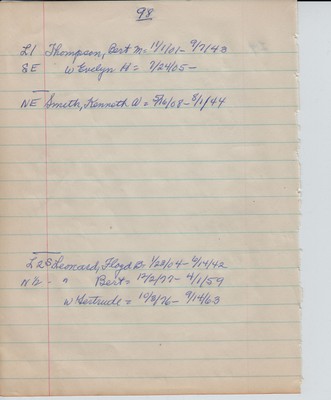 98
L1 Thompson, Bert M. 11/1/01 - 9/7/43
SE W Evelyn H = 7/24/05 -
NE Smith, Kenneth W = 5/16/08 - 8/1/44
L2S Leonard, Floyd B 1/22/04 - 4/14/42
N½ - " Bert = 12/2/77 - 4/1/59
W Gertrude = 10/3/76 - 9/14/63